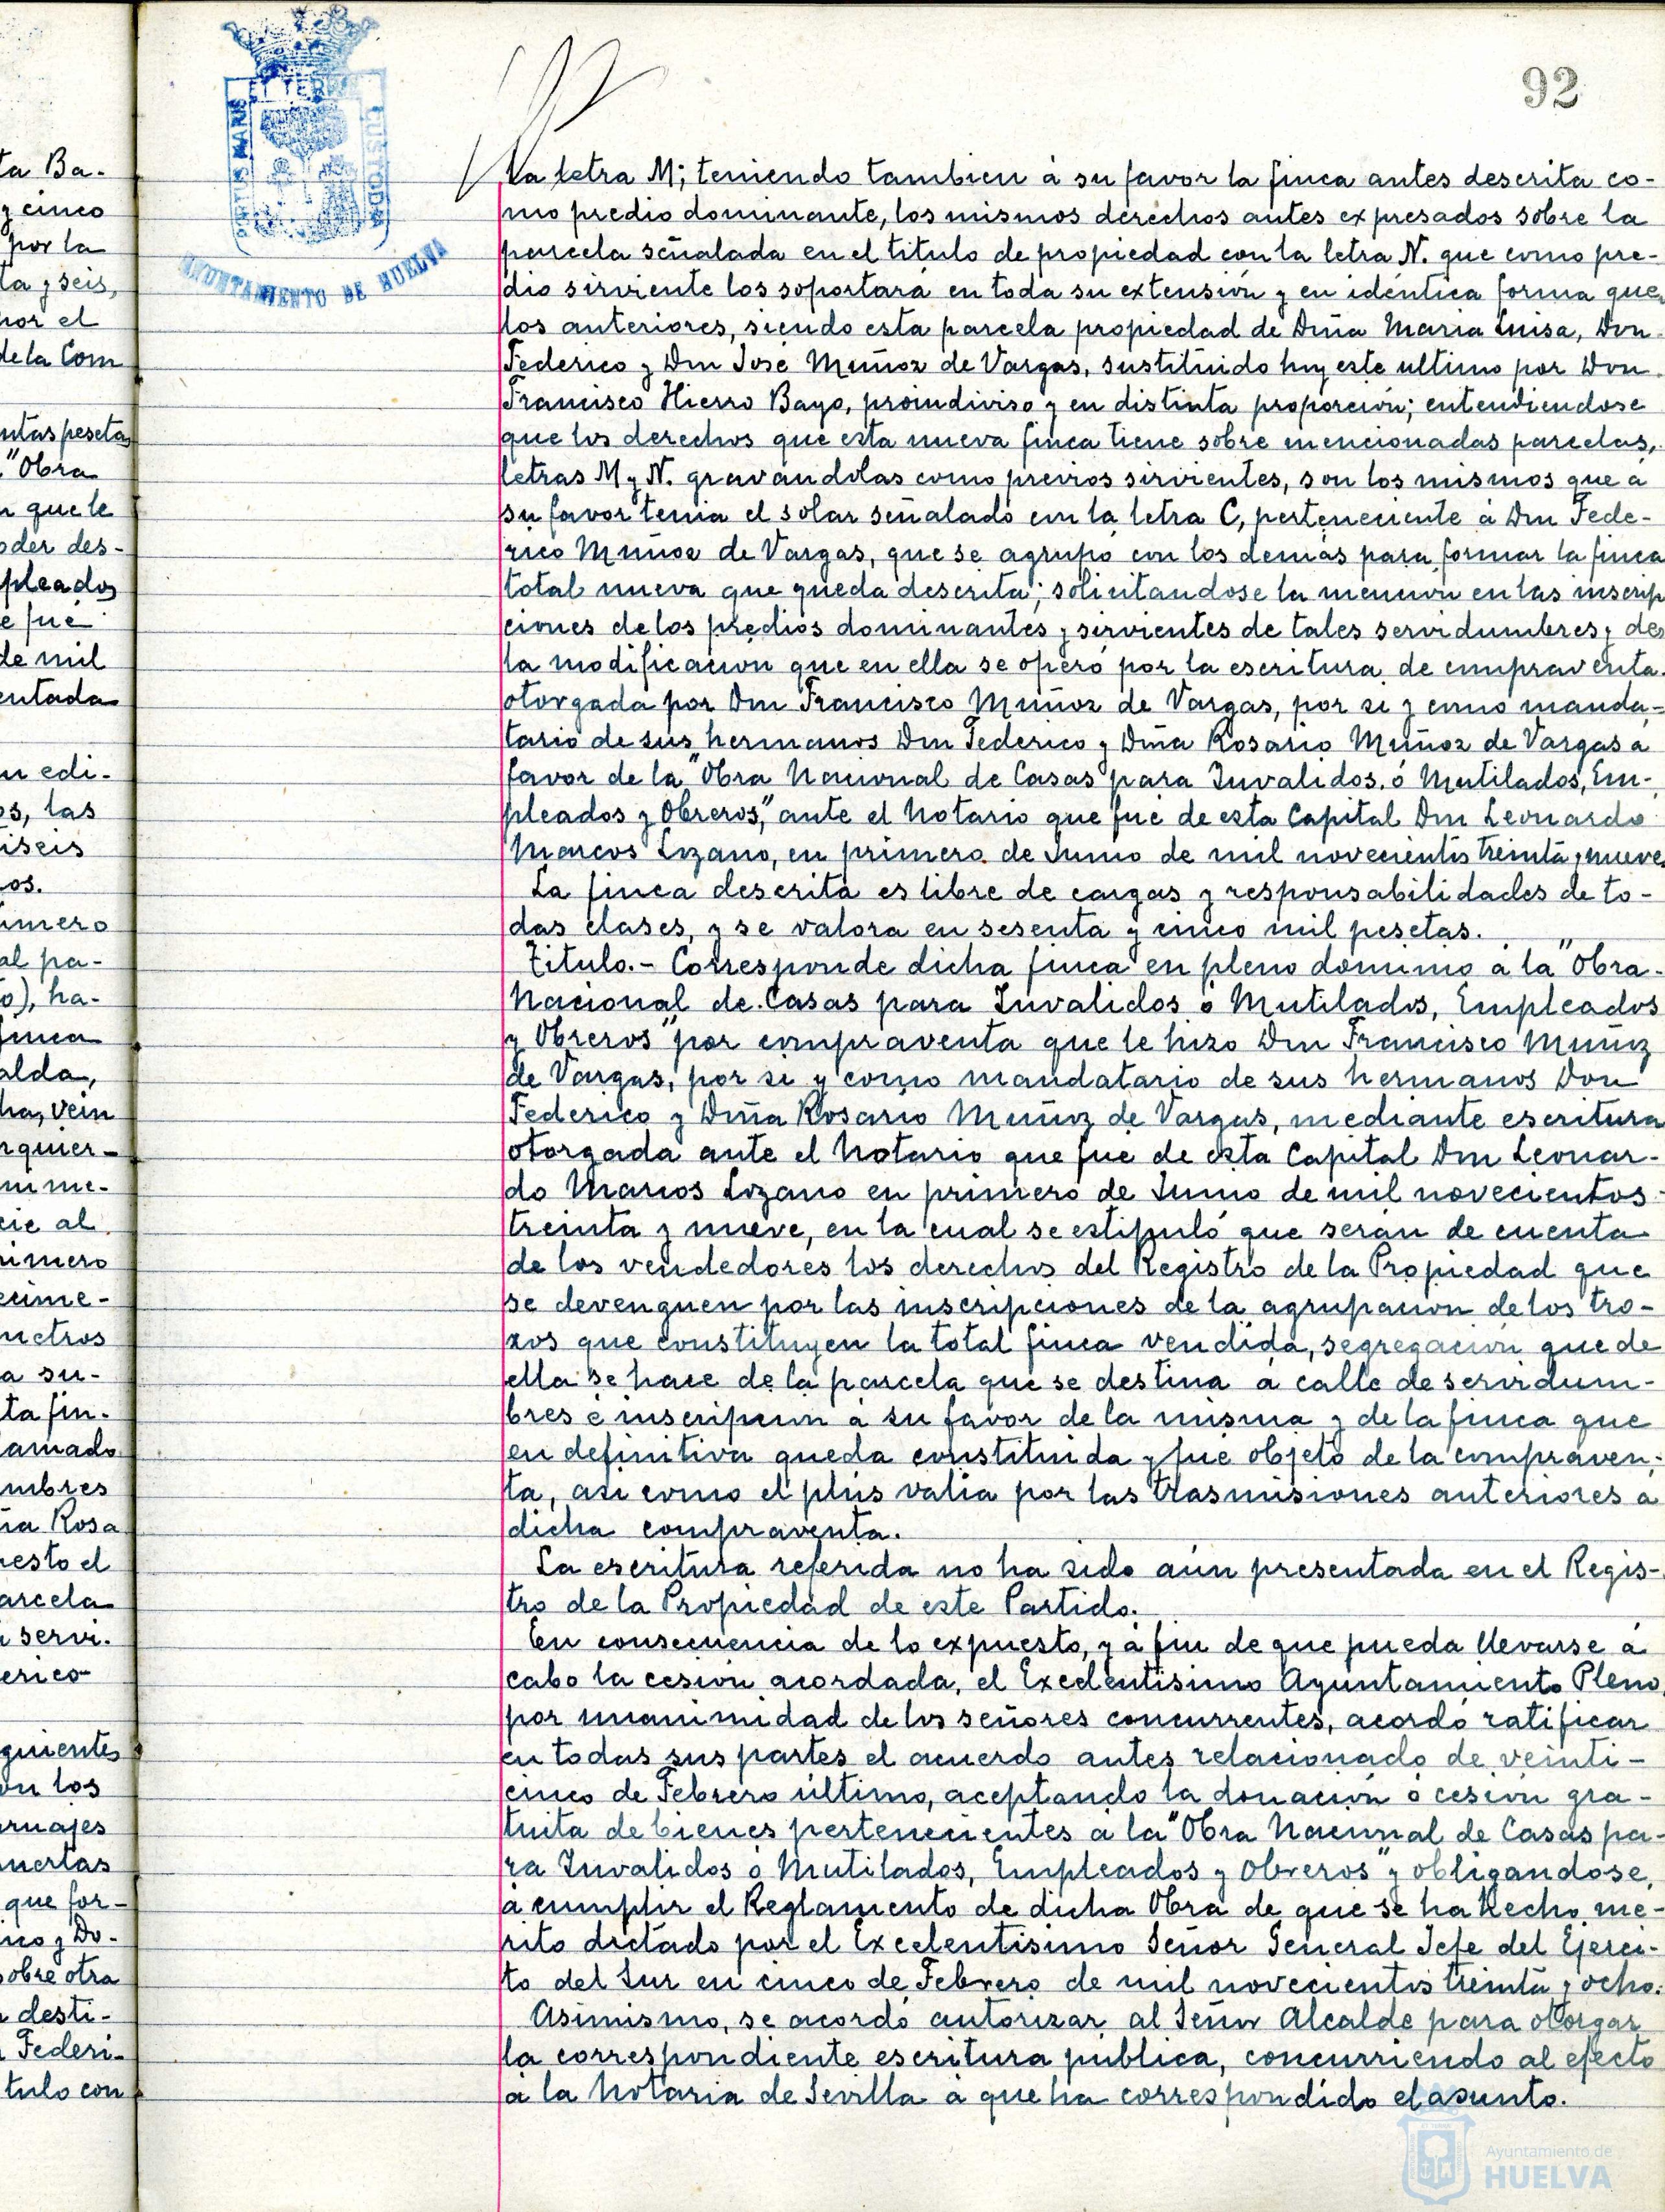 92
PORTUS MARIS ET TERRE CUSTODIA
AYUNTAMIENTO DE HUELVA
ta Ba-
y cinco
por la
ta y seis,
por el
de la Com
ntas pesetas
"Obra
n que le
oder des-
pleados
e fué
de mil
entada
n edi-
os, las
iseis
os.
úmero
al pa-
o), ha-
finca
alda,
ha, vein
zquier-
nime-
cie al
rimero
ecime-
metros
a su-
ta fin-
lamado
umbres
ña Rosa
esto el
arcela
servi-
erico
guientes
on los
rruajes
uertas
que for-
ico y Do-
sobre otra
desti-
Federi-
tulo con
la letra M; teniendo tambien á su favor la finca antes descrita co-
mo predio dominante, los mismos derechos antes expresados sobre la
parcela señalada en el titulo de propiedad con la letra N. que como pre-
dio sirviente los soportará en toda su extensión y en idéntica forma que
los anteriores, siendo esta parcela propiedad de Dña Maria Luisa, Don
Federico y Don José Muñoz de Vargas, sustituido hoy este ultimo por Don
Francisco Hierro Bayo, proindiviso y en distinta proporción; entendiendose
que los derechos que esta nueva finca tiene sobre mencionadas parcelas,
letras M y N. gravándolas como previos sirvientes, son los mismos que á
su favor tenia el solar señalado con la letra C, perteneciente á Don Fede-
rico Muñoz de Vargas, que se agrupó con los demás para formar la finca
total nueva que queda descrita; solicitandose la mención en las inscrip
ciones de los predios dominantes y sirvientes de tales servidumbres y de
la modificación que en ella se operó por la escritura de compraventa
otorgada por Don Francisco Muñoz de Vargas, por si y como manda-
tario de sus hermanos Don Federico y Dña Rosario Muñoz de Vargas á
favor de la "Obra Nacional de Casas para Invalidos ó Mutilados, Em-
pleados y Obreros", ante el Notario que fué de esta Capital Don Leonardo
Marcos Lozano, en primero de Junio de mil novecientos treinta y nueve.
La finca descrita es libre de cargas y responsabilidades de to-
das clases, y se valora en sesenta y cinco mil pesetas.
Titulo.- Corresponde dicha finca en pleno dominio á la "Obra
Nacional de Casas para Invalidos ó Mutilados, Empleados
y Obreros" por compraventa que le hizo Don Francisco Muñoz
de Vargas, por si y como mandatario de sus hermanos Don
Federico y Dña Rosario Muñoz de Vargas, mediante escritura
otorgada ante el Notario que fué de esta Capital Don Leonar-
do Marcos Lozano en primero de Junio de mil novecientos
treinta y nueve, en la cual se estipuló que serán de cuenta
de los vendedores los derechos del Registro de la Propiedad que
se devenguen por las inscripciones de la agrupación de los tro-
zos que constituyen la total finca vendida, segregación que de
ella se hace de la parcela que se destina á calle de servidum-
bres é inscripción á su favor de la misma y de la finca que
en definitiva queda constituida y fué objeto de la compraven-
ta, asi como el plus valia por las trasmisiones anteriores á
dicha compraventa.
La escritura referida no ha sido aún presentada en el Regis-
tro de la Propiedad de este Partido.
En consecuencia de lo expuesto, y á fin de que pueda llevarse á
cabo la cesión acordada, el Excelentisimo Ayuntamiento Pleno,
por unanimidad de los señores concurrentes, acordó ratificar
en todas sus partes el acuerdo antes relacionado de veinti-
cinco de Febrero último, aceptando la donación ó cesión gra-
tuita de bienes pertenecientes a la "Obra Nacional de Casas pa-
ra Invalidos ó Mutilados, Empleados y Obreros" y obligandose,
á cumplir el Reglamento de dicha Obra de que se ha hecho mé-
rito dictado por el Excelentisimo Señor General Jefe del Ejerci-
to del Sur en cinco de Febrero de mil novecientos treinta y ocho.
Asimismo, se acordó autorizar al Señor Alcalde para otorgar
la correspondiente escritura publica, concurriendo al efecto
á la Notaria de Sevilla á que ha correspondido el asunto.
Ayuntamiento de
HUELVA